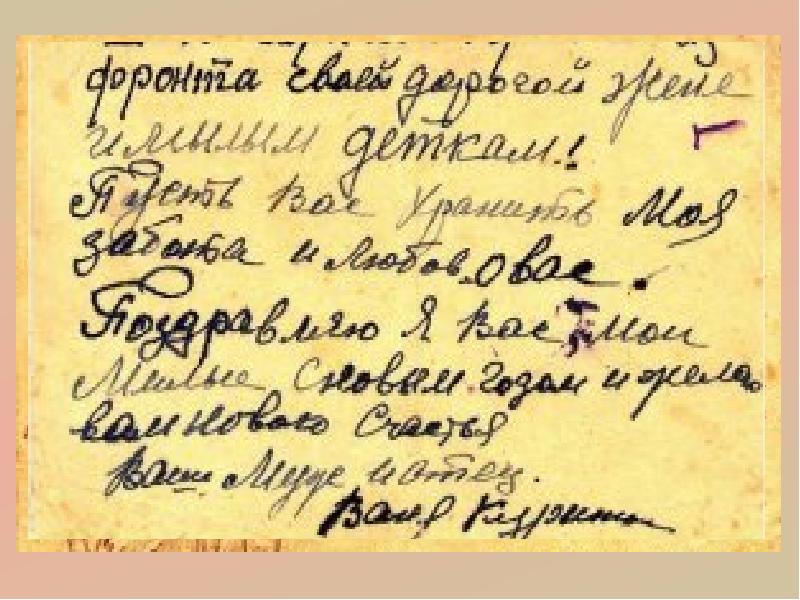 из
фронта своей дорогой жене
и милым деткам!
Пусть Вас Хранить Моя
забота и любов о вас.
Поздравляю Я Вас Мои
Милые С новым годом и желаю
вам нового счастья
Ваш Муж и отец.
Ваня